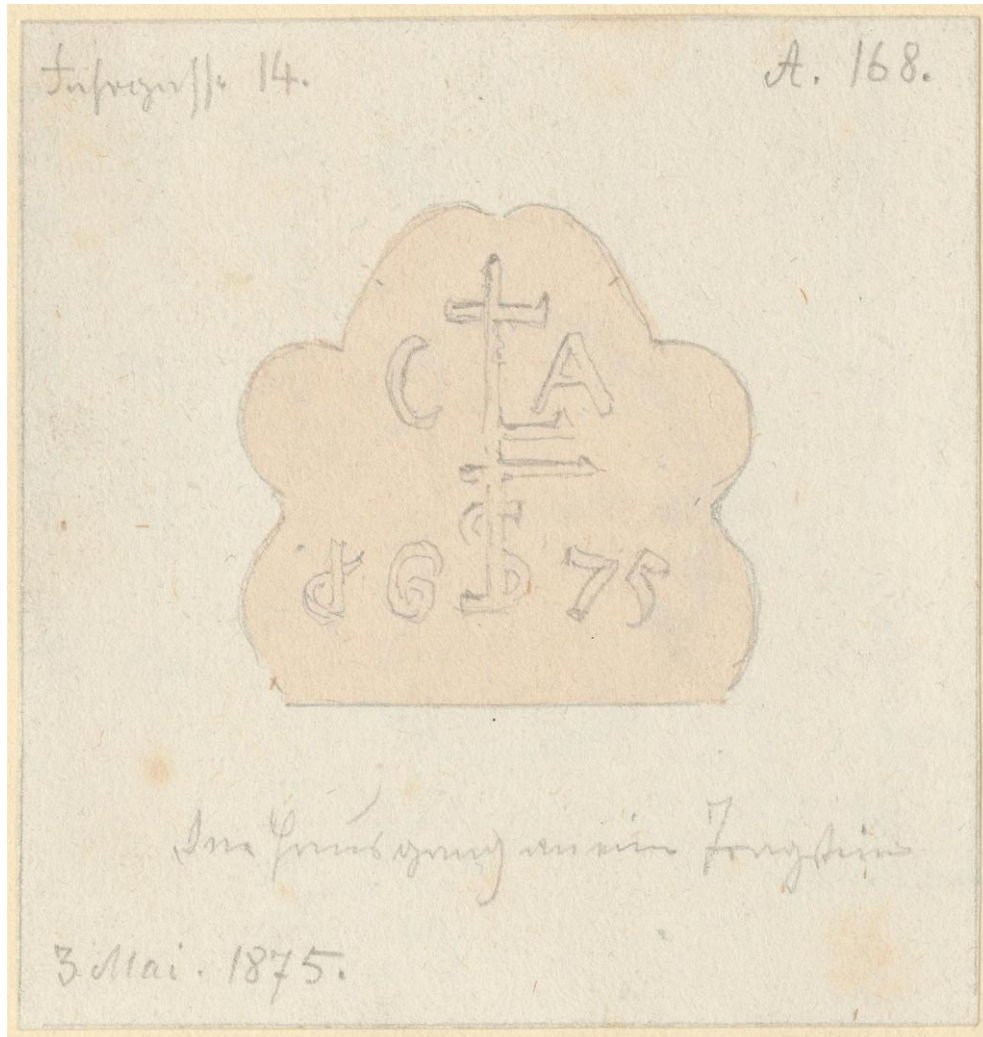 Fahrgasse 14.
A. 168.
C A
1 6 75
Im Hausgang an einem Tragstein
3. Mai. 1875.